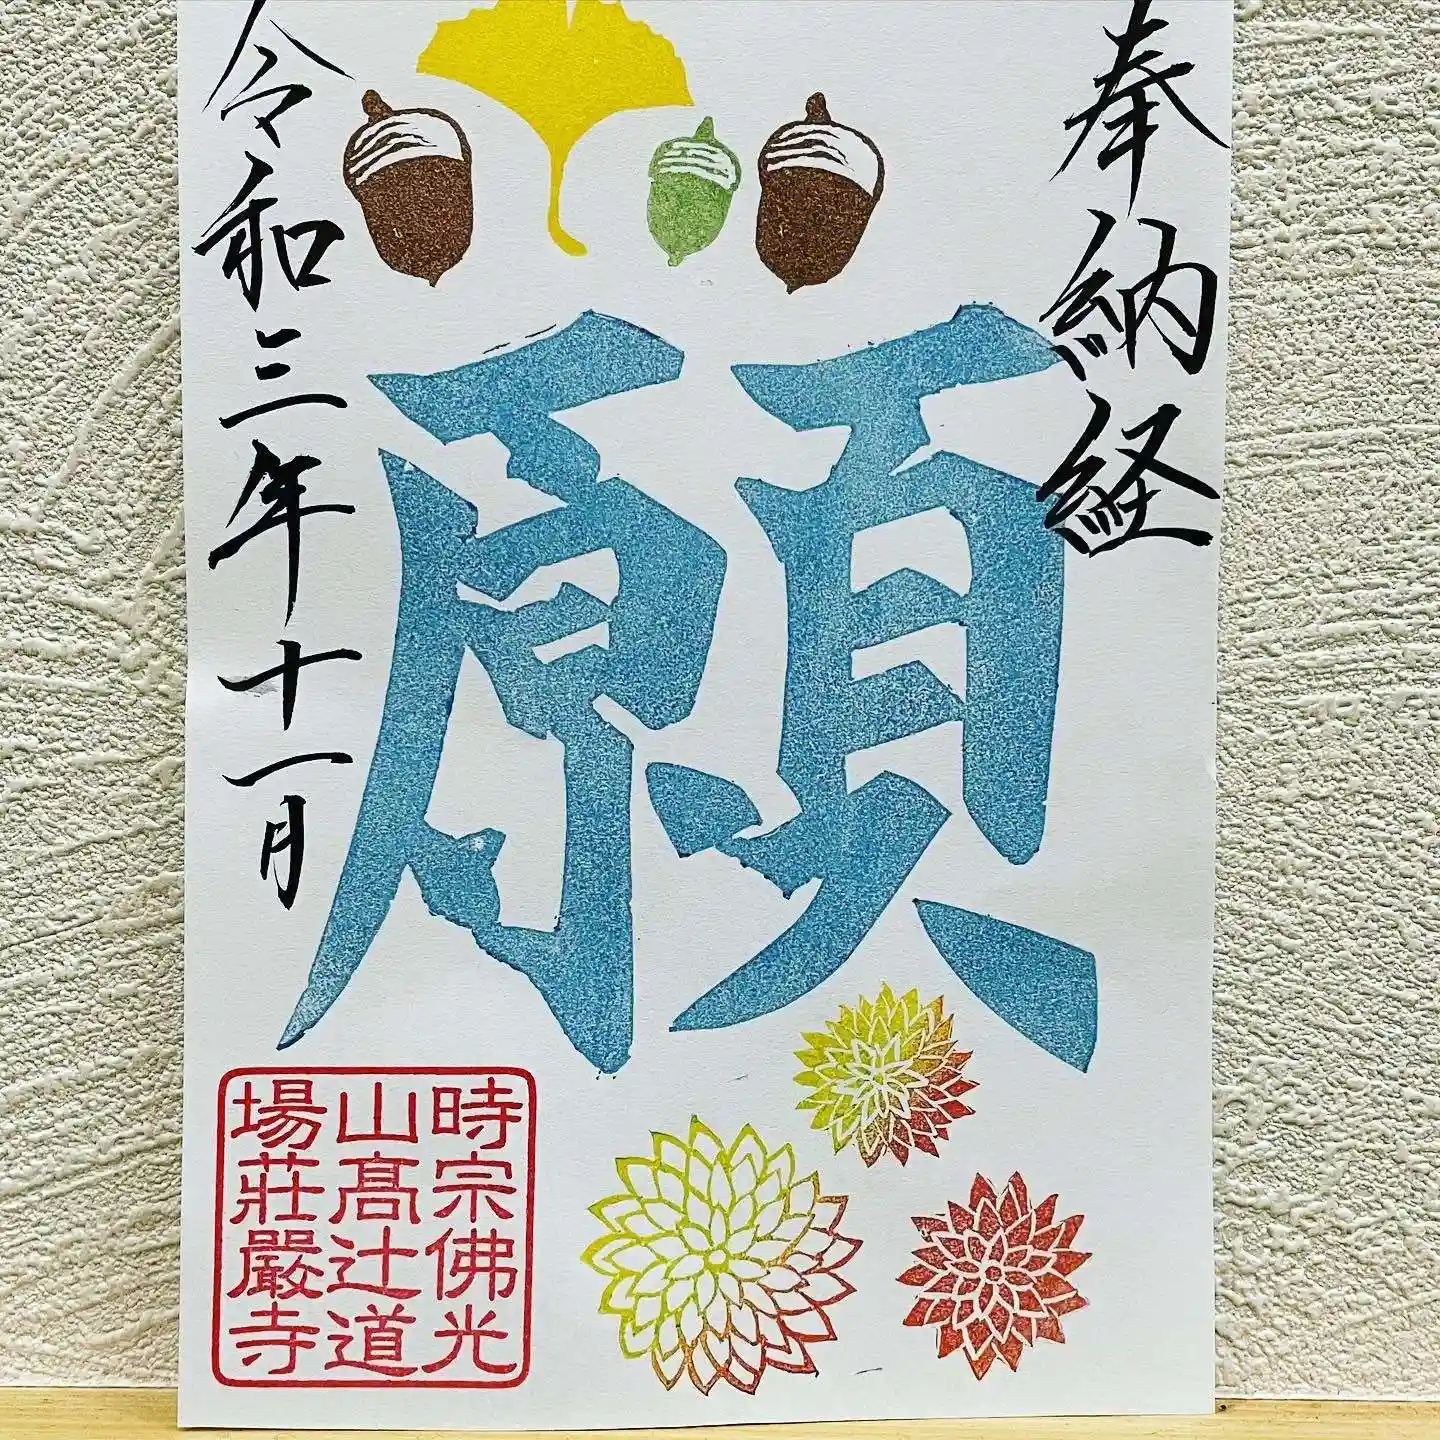 奉納経
願
令和三年十一月
時宗佛光
山髙辻道
場莊嚴寺